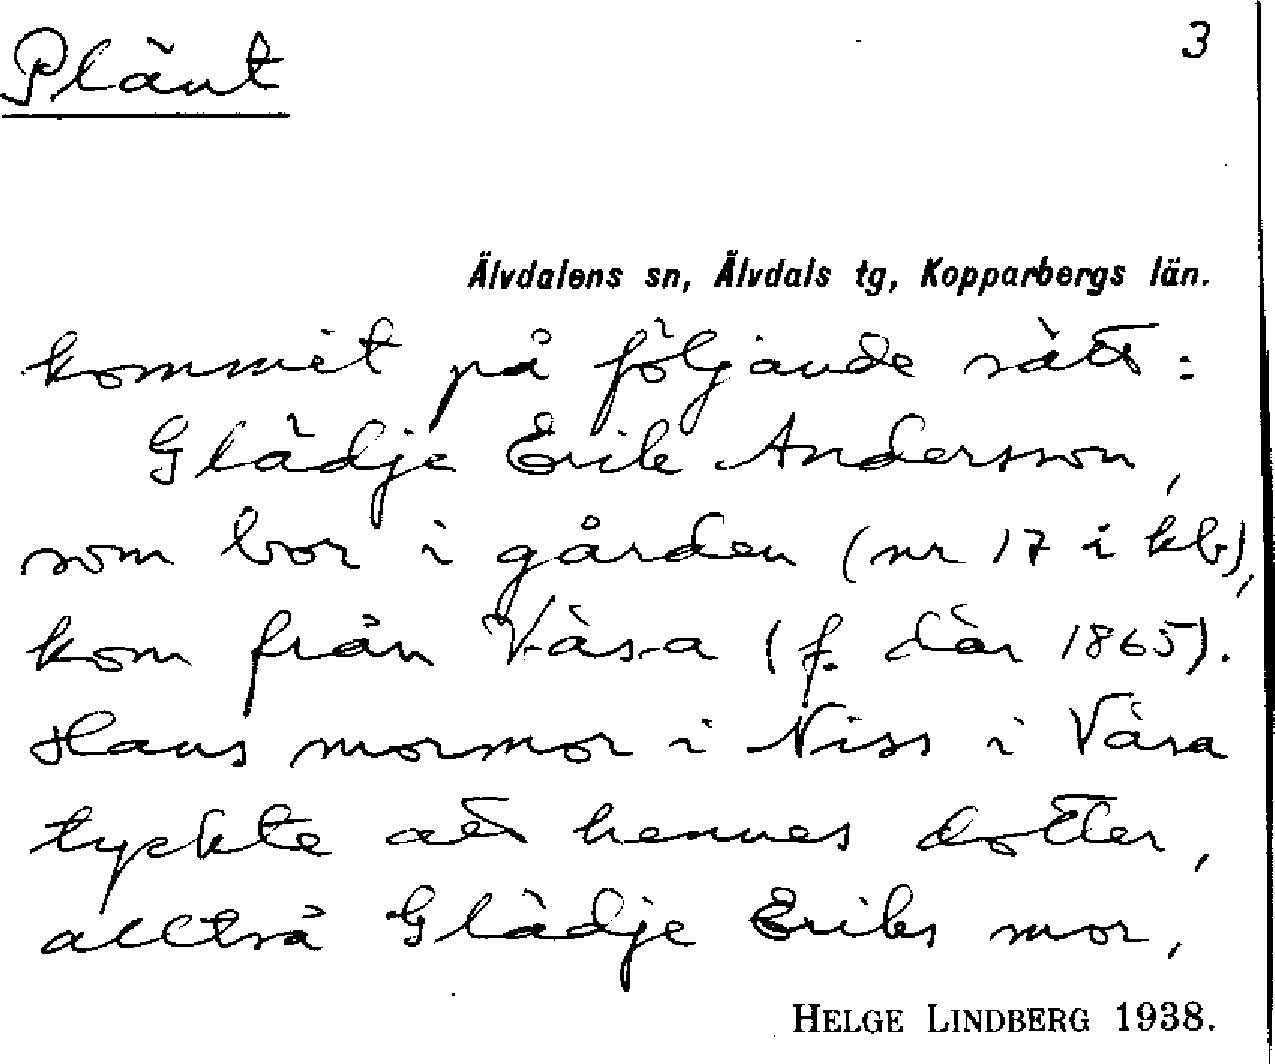 Plänt
3
Älvdalens sn, Älvdals tg, Kopparbergs län.
kommit på följande sätt:
Glädje Erik Andersson,
som bor i gården (nr 17 i kb),
kom från Väsa (f. där 1865).
Hans mormor i Niss i Väsa
tyckte att hennes dotter,
alltså Glädje Eriks mor,
HELGE LINDBERG 1938.